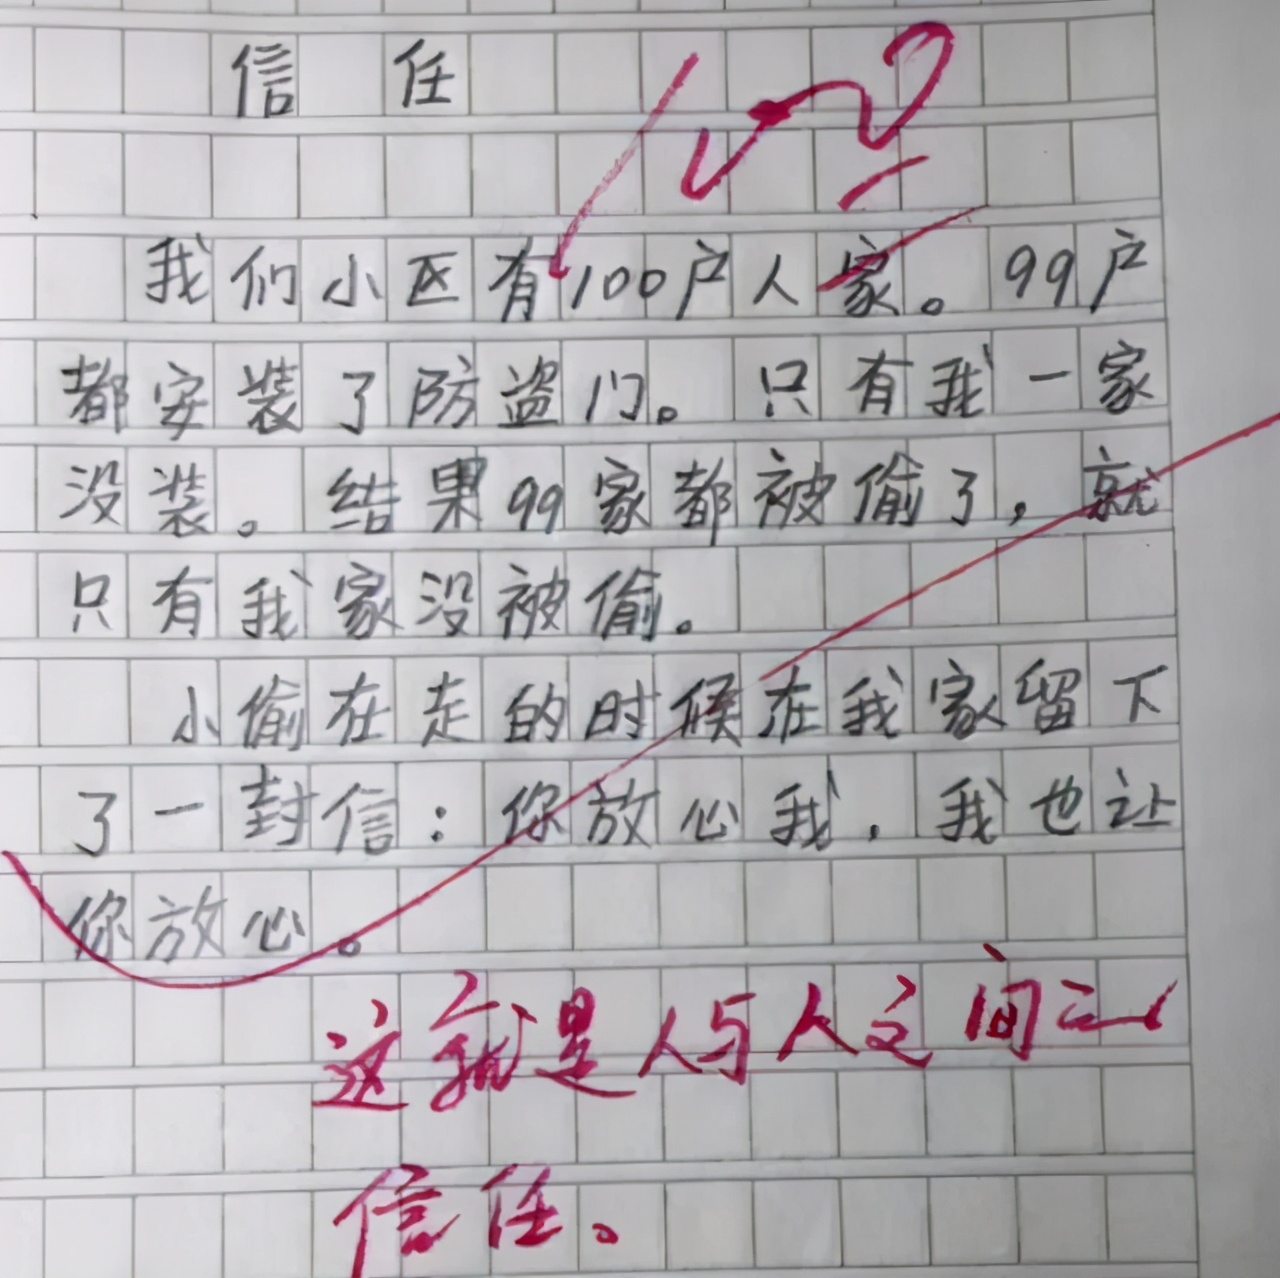 信任
100
我们小区有100户人家。99户
都安装了防盗门。只有我一家
没装。结果99家都被偷了，就
只有我家没被偷。
小偷在走的时候在我家留下
了一封信：你放心我，我也让
你放心。
这就是人与人之间
信任。